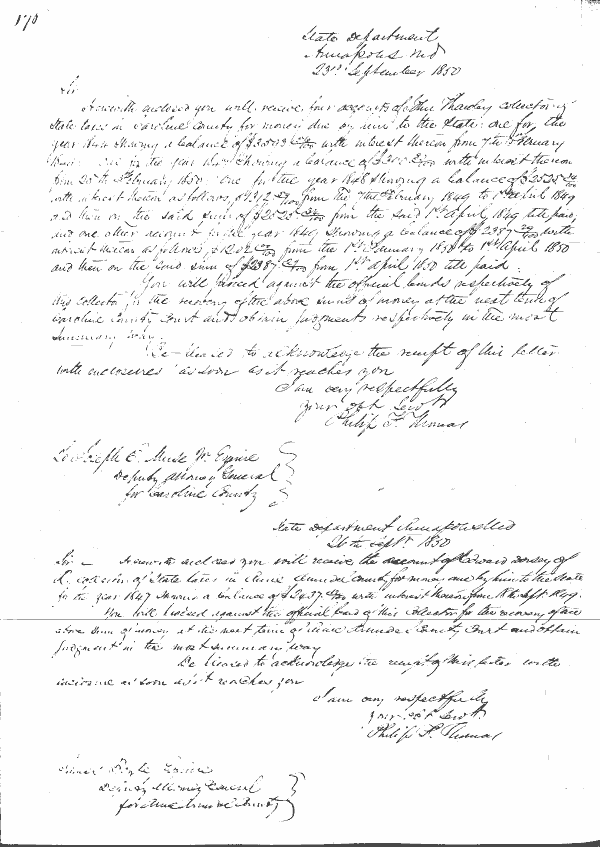 170
State Department
Annapolis Md
23rd September 1850
Sir
Herewith enclosed you will receive four accounts of John Thawley collector of
State taxes in Caroline County for money due by him to the State: one for the
year showing a balance of with interest thereon from 7th February
one for the year showing a balance of with interest thereon
from 20th February 1850: one for the year 1848 showing a balance of $2525
with interest thereon as follows, from the 7th February 1849 to 1st april 1849
and then on the said sum of $2525 from the said 1st April, 1849 till paid;
and one other account for the year 1849 showing a balance of $2387 with
interest thereon as follows, from the 1st February 1850 to 1st April 1850
and then on the said sum of $2387 from 1st april 1850 till paid.
You will proceed against the official bonds respectively of
this collector for the recovery of the above sums of money at the next term of
Caroline County Court and obtain judgments respectively in the most
summary way.
Be pleased to acknowledge the receipt of this letter
with enclosures as soon as it reaches you
I am very respectfully
your obt Servt
Philip F. Thomas
To Joseph E. Muse Jr Esquire
Deputy Attorney General
for Caroline County
State Department Annapolis Md
26th Septr 1850
Sir — Herewith enclosed you will receive the account of Edward Dorsey of
R. collector of State taxes in Anne Arundel County for money due by him to the State
for the year 1847 showing a balance of $2437 with interest thereon from
You will proceed against the official bond of this collector for the recovery of the
above sum of money at the next term of Anne Arundel County Court and obtain
judgment in the most summary way
Be pleased to acknowledge the receipt of this letter with
inclosure as soon as it reaches you
I am very respectfully
your obt Servt.
Philip F. Thomas
Boyle Esquire
Deputy Attorney General
for Anne Arundel County